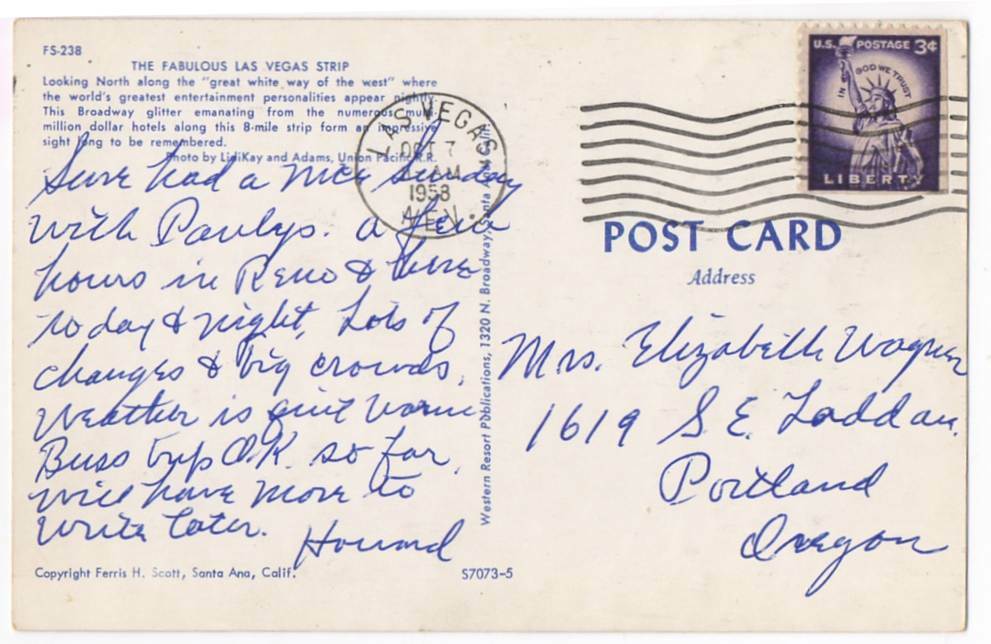 FS-238
THE FABULOUS LAS VEGAS STRIP
Looking North along the "great white way of the west" where
the world's greatest entertainment personalities appear nightly.
This Broadway glitter emanating from the numerous multi-
million dollar hotels along this 8-mile strip form an impressive
sight long to be remembered.
Photo by LidiKay and Adams, Union Pacific R.R.
Sure had a nice Sunday
with Paulys. a few
hours in Reno & here
today & night, Lots of
changes & big crowds,
Weather is quit warm
Buss trip O.K. so far,
will have more to
write later.
Howard
Copyright Ferris H. Scott, Santa Ana, Calif.
S7073-5
Western Resort Publications, 1320 N. Broadway, Santa Ana,
LAS VEGAS
OCT 7
AM
1958
NEV.
U.S. POSTAGE 3¢
IN GOD WE TRUST
LIBERTY
POST CARD
Address
Mrs. Elizabeth Wagner
1619 S.E. Ladd av.
Portland
Oregon